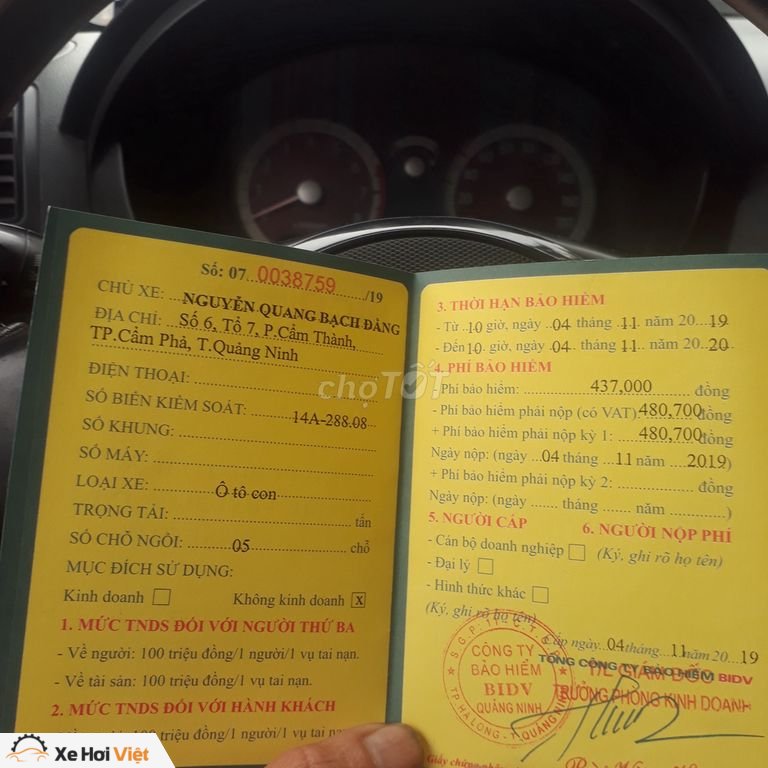 Số: 07 0038759 /19
CHỦ XE: NGUYỄN QUANG BẠCH ĐẰNG
ĐỊA CHỈ: Số 6, Tổ 7, P.Cẩm Thành,
TP.Cẩm Phả, T.Quảng Ninh
ĐIỆN THOẠI:
SỐ BIỂN KIỂM SOÁT: 14A-288.08
SỐ KHUNG:
SỐ MÁY:
LOẠI XE: Ô tô con
TRỌNG TẢI: tấn
SỐ CHỖ NGỒI: 05 chỗ
MỤC ĐÍCH SỬ DỤNG:
Kinh doanh Không kinh doanh X
1. MỨC TNDS ĐỐI VỚI NGƯỜI THỨ BA
- Về người: 100 triệu đồng/1 người/1 vụ tai nạn.
- Về tài sản: 100 triệu đồng/1 vụ tai nạn.
2. MỨC TNDS ĐỐI VỚI HÀNH KHÁCH
- Về người: 100 triệu đồng/1 người/1 vụ tai nạn.
3. THỜI HẠN BẢO HIỂM
- Từ 10 giờ, ngày 04 tháng 11 năm 2019
- Đến 10 giờ, ngày 04 tháng 11 năm 2020
4. PHÍ BẢO HIỂM
- Phí bảo hiểm: 437,000 đồng
- Phí bảo hiểm phải nộp (có VAT) 480,700 đồng
+ Phí bảo hiểm phải nộp kỳ 1: 480,700 đồng
Ngày nộp: (ngày 04 tháng 11 năm 2019)
+ Phí bảo hiểm phải nộp kỳ 2: đồng
Ngày nộp: (ngày ...... tháng ...... năm ............)
5. NGƯỜI CẤP 6. NGƯỜI NỘP PHÍ
- Cán bộ doanh nghiệp (Ký, ghi rõ họ tên)
- Đại lý
- Hình thức khác
(Ký, ghi rõ họ tên)
Cấp ngày 04 tháng 11 năm 2019
TỔNG CÔNG TY BẢO HIỂM BIDV
TL GIÁM ĐỐC
TRƯỞNG PHÒNG KINH DOANH
CÔNG TY
BẢO HIỂM
BIDV
QUẢNG NINH
TP HẠ LONG - T. QUẢNG NINH
Giấy chứng nhận
chợTỐT
Xe Hơi Việt